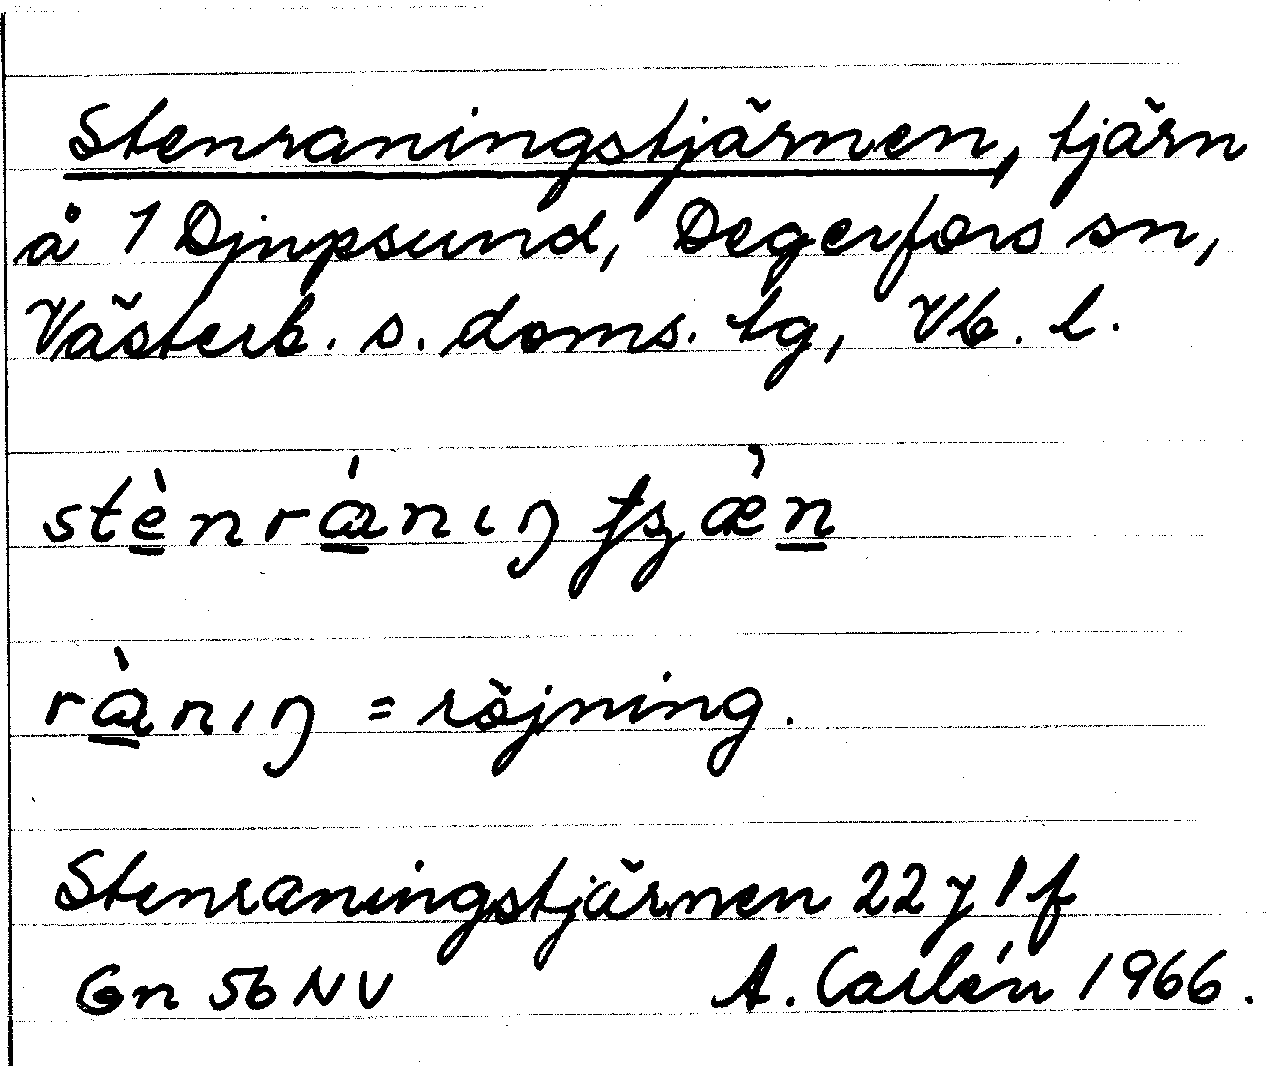 Stenraningstjärnen, tjärn
å 1 Djupsund, Degerfors sn,
Västerb. s. doms. tg, Vb. l.
stènrániŋ
ràniŋ = röjning.
Stenraningstjärnen 22 j 1 f
Gn 56 NV A. Carlén 1966.